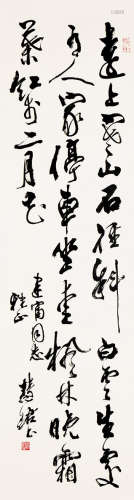 遠上寒山石徑斜白雲生處
有人家停車坐愛楓林晚霜
葉紅於二月花
同志
雅正